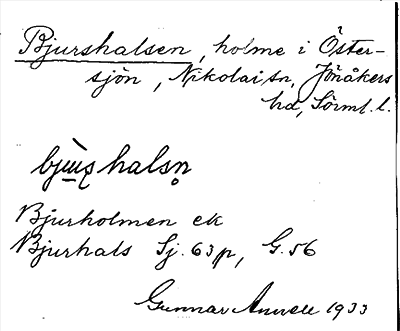 Bjurshalsen, holme i Öster-
sjön, Nikolai sn, Jönåkers
hd, Sörml. l.
bju̲s̨halsn̥
Bjurholmen ek
Bjurhals Sj. 63p, G. 56
Gunnar 1933